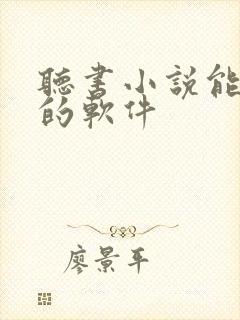 聽書小說能
的軟件
廖景平